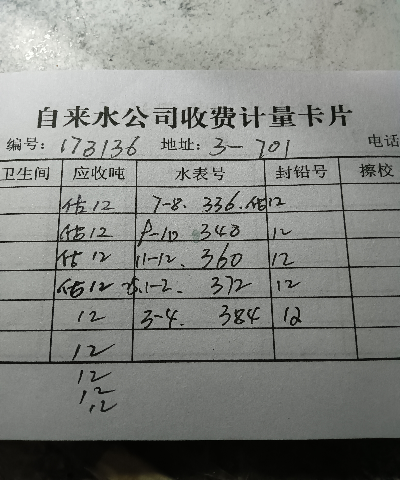 自来水公司收费计量卡片
编号: 173136 地址: 3-701 电话
卫生间 应收吨 水表号 封铅号 擦校
估12 7-8. 336. 估12
估12 9-10 348 12
估12 11-12. 360 12
估12 1-2. 372 12
12 3-4. 384 12
12
12
12
12